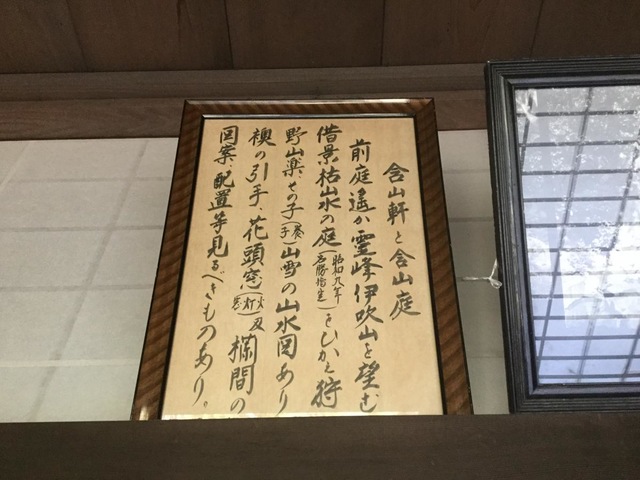 含山軒と含山庭
前庭遙か霊峰伊吹山を望む
借景枯山水の庭(昭和九年名勝指定)をむかえ狩
野山楽、その子(養子)山雪の山水図あり
襖の引手、花頭窓(火灯窓)及欄間の
図案、配置等見るべきものあり。